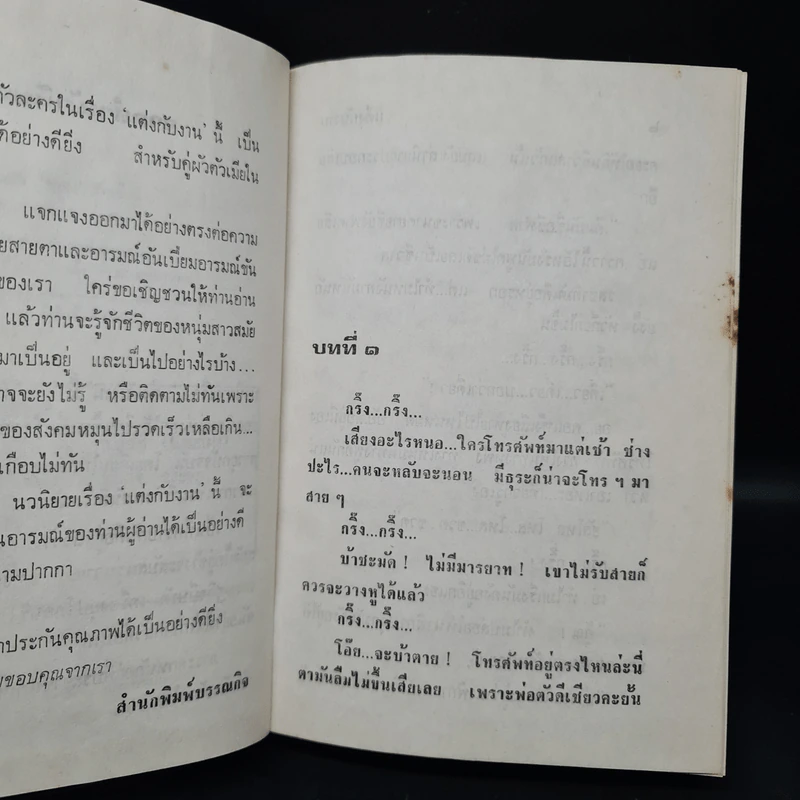 ตัวละครในเรื่อง 'แต่งกับงาน' นี้ เป็น
ด้อย่างดียิ่ง สำหรับคู่ผัวตัวเมียใน
แจกแจงออกมาได้อย่างตรงต่อความ
ยสายตาและอารมณ์อันเปี่ยมอารมณ์ขัน
ของเรา ใคร่ขอเชิญชวนให้ท่านอ่าน
แล้วท่านจะรู้จักชีวิตของหนุ่มสาวสมัย
มาเป็นอยู่ และเป็นไปอย่างไรบ้าง...
าจจะยังไม่รู้ หรือติดตามไม่ทันเพราะ
ของสังคมหมุนไปรวดเร็วเหลือเกิน...
เกือบไม่ทัน
นวนิยายเรื่อง 'แต่งกับงาน' นี้ จะ
นอารมณ์ของท่านผู้อ่านได้เป็นอย่างดี
ามปากกา
าประกันคุณภาพได้เป็นอย่างดียิ่ง
ยขอบคุณจากเรา
สำนักพิมพ์บรรณกิจ
บทที่ ๑
กริ๊ง...กริ๊ง...
เสียงอะไรหนอ...ใครโทรศัพท์มาแต่เช้า ช่าง
ปะไร...คนจะหลับจะนอน มีธุระก็น่าจะโทร ฯ มา
สาย ๆ
กริ๊ง...กริ๊ง...
บ้าชะมัด ! ไม่มีมารยาท ! เขาไม่รับสายก็
ควรจะวางหูได้แล้ว
กริ๊ง...กริ๊ง...
โอ๊ย...จะบ้าตาย ! โทรศัพท์อยู่ตรงไหนล่ะนี่
ตามันลืมไม่ขึ้นเสียเลย เพราะพ่อตัวดีเชียวคะยั้น